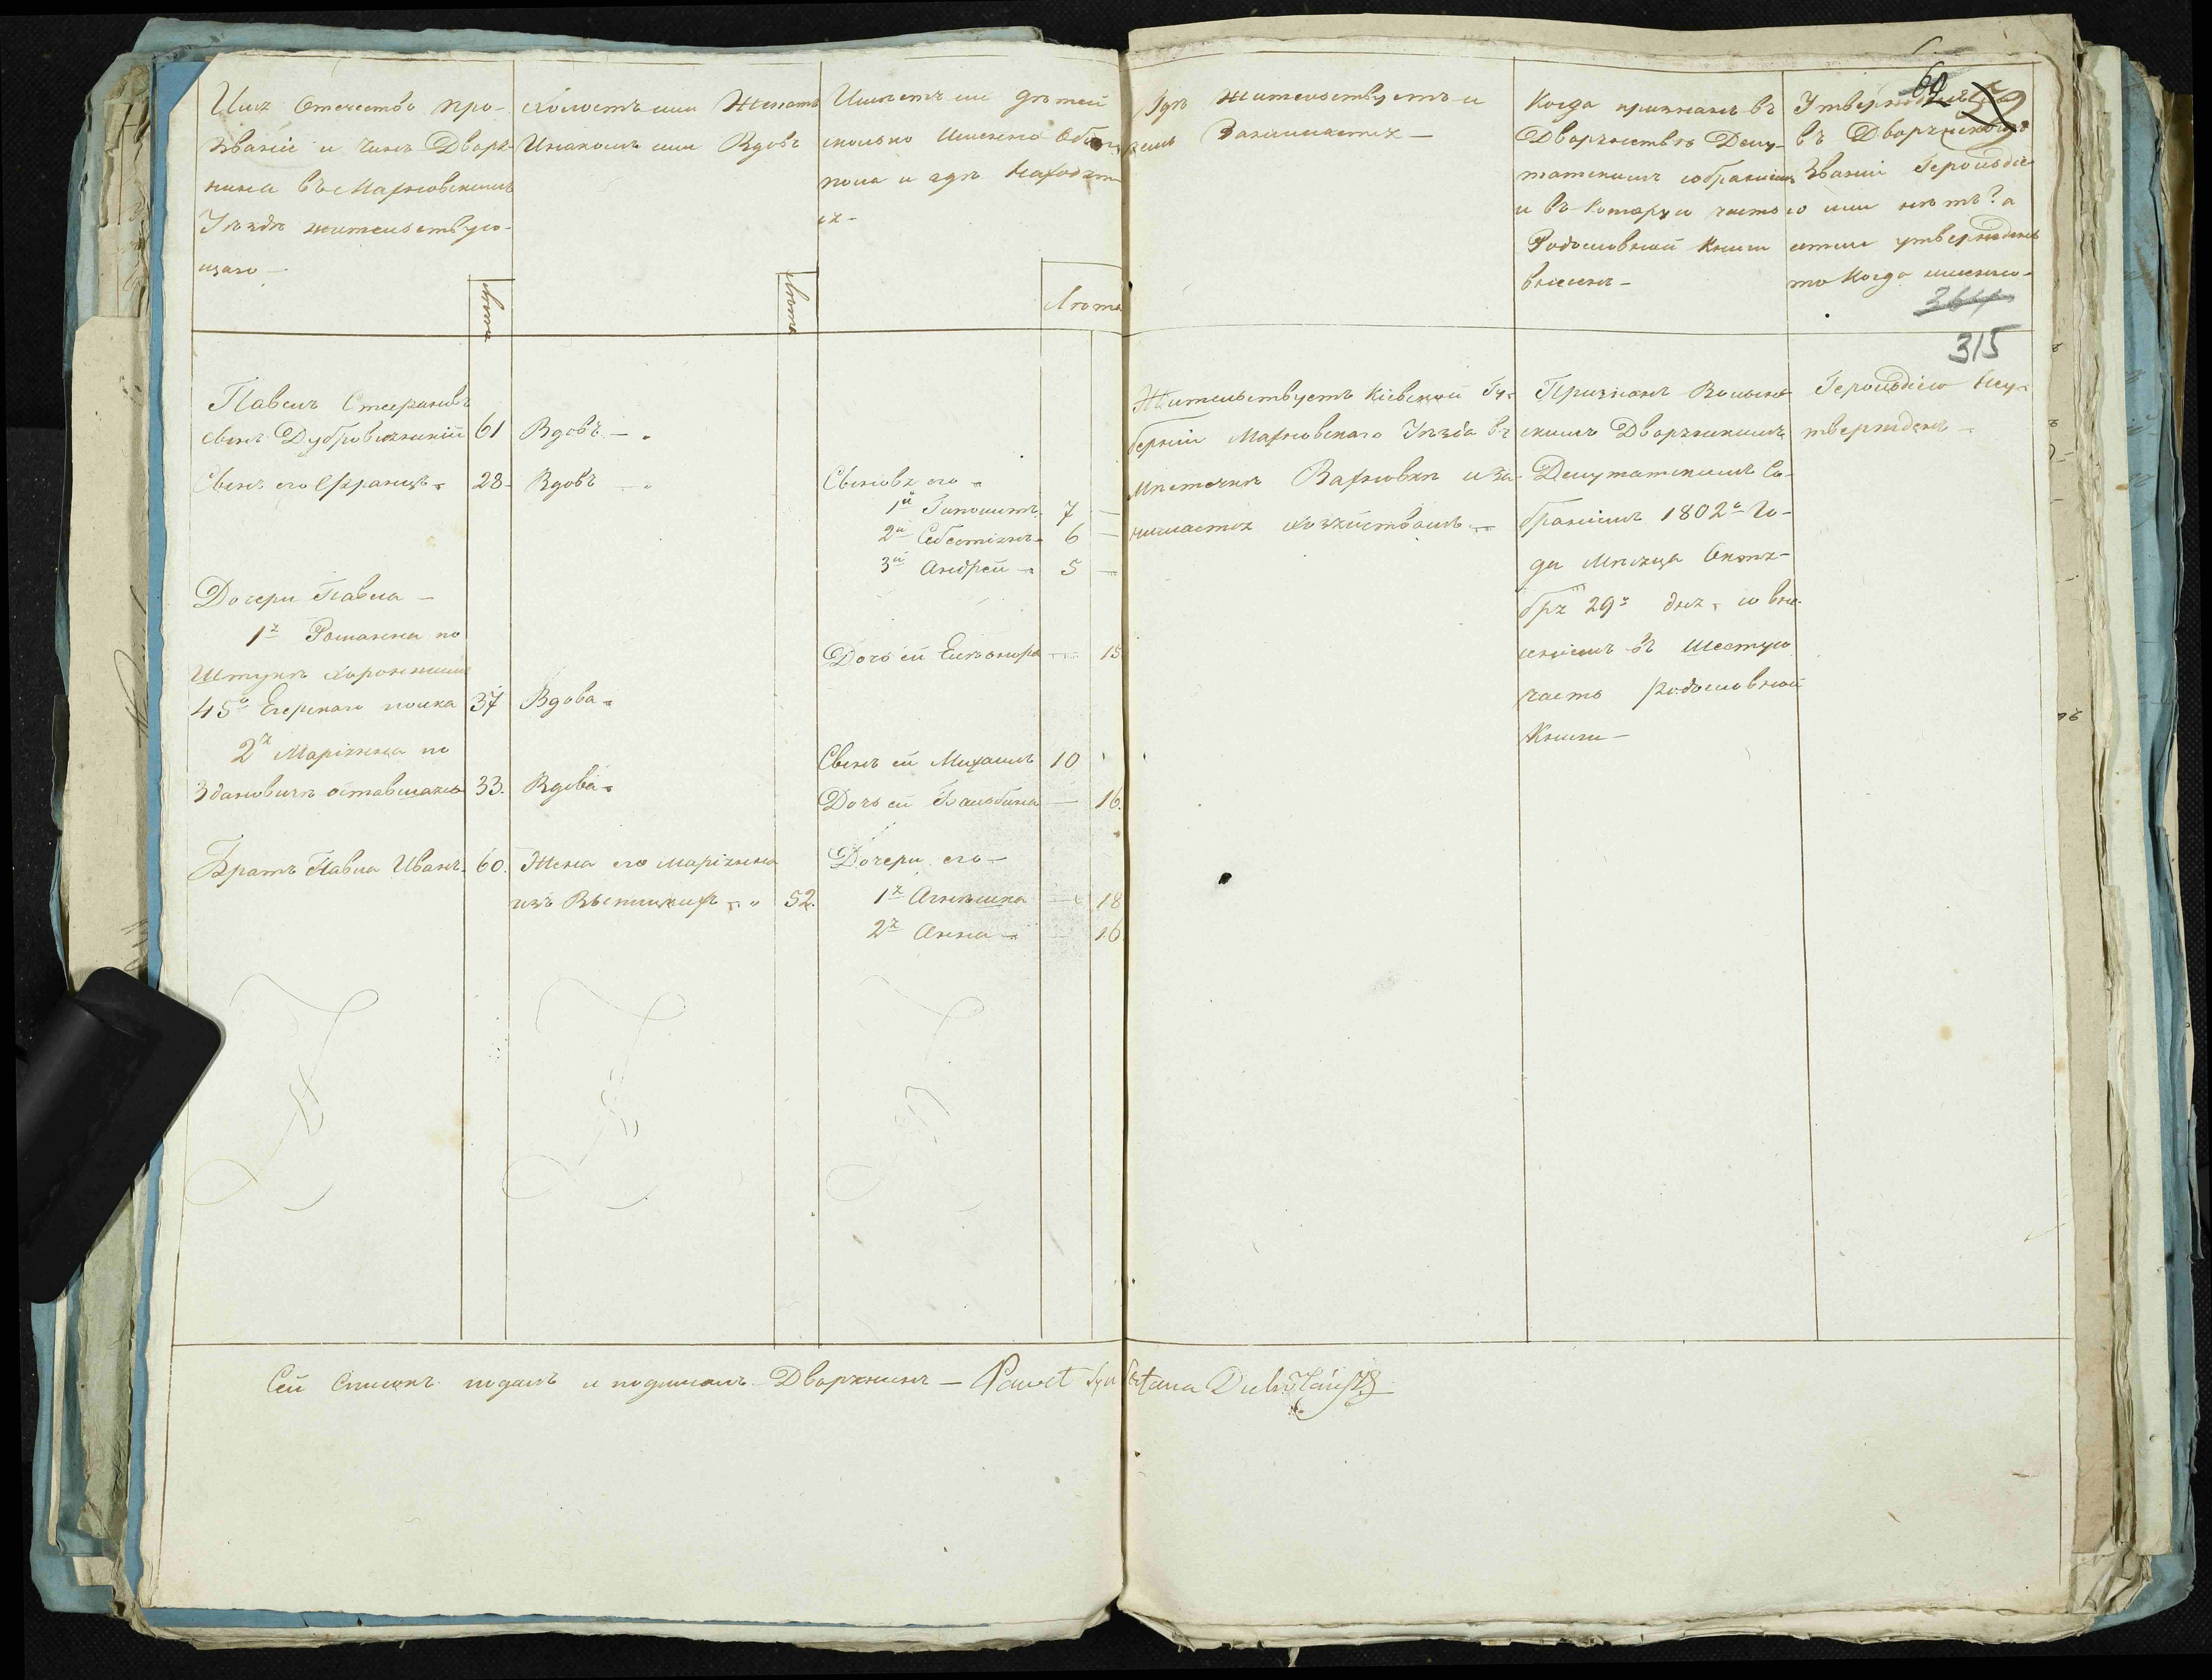 Имя Отечество про-
званіе и чинъ Дворя-
нина въ Махновскомъ
Уѣздѣ жительствую-
щаго —
лѣта
холостъ или Женатъ
Инакомъ или Вдовъ
Лѣта
Имѣетъ ли дѣтей
сколько именно обоего
пола и гдѣ находят-
ся —
Лѣта
Гдѣ жительствуетъ и
чемъ Занимается —
Когда признанъ въ
Дворянствѣ Депу-
татскимъ собраніемъ
и въ которую часть
Родословной Книги
внесенъ —
въ Дворянскомъ
Званіи Герольдіею
или нѣтъ? а
если утвержденъ
то Когда именно —
60
59
364
315
Павелъ Стефановъ
сынъ Дубровлянскій 61 Вдовъ —
Сынъ его Францъ 28 Вдовъ —
Сыновья его
1й Гиполитъ 7 —
2й Себестіянъ 6 —
3й Андрей 5 —
Дочери Павла —
1я Романна по
Штукѣ хоронжем
45го Егерскаго полка 37 Вдова
Дочь ей Елеонора — 15
2я Маріянна по
Здановичѣ оставшаяся 33. Вдова
Сынъ ей Михаилъ 10
Дочь ей Бальбина — 16.
Братъ Павла Иванъ 60. Жена его Маріянна
изъ 52.
Дочери его —
1я Агнѣшка — 18
2я Анна — 16
Жительствуетъ Кіевской Гу-
берніи Махновскаго Уѣзда въ
мѣстечкѣ Вахновкѣ и за-
нимается хозяйствомъ —
Признанъ Волын-
скимъ Дворянскимъ
Депутатскимъ Со-
браніемъ 1802го Го-
да Мѣсяца Октя-
бря 29го дня, со вне-
сеніемъ въ Шестую
часть Родословной
Книги —
Герольдіею Неу-
твержденъ —
Сей Списокъ подалъ и подписалъ Дворянинъ — Paweł Syn